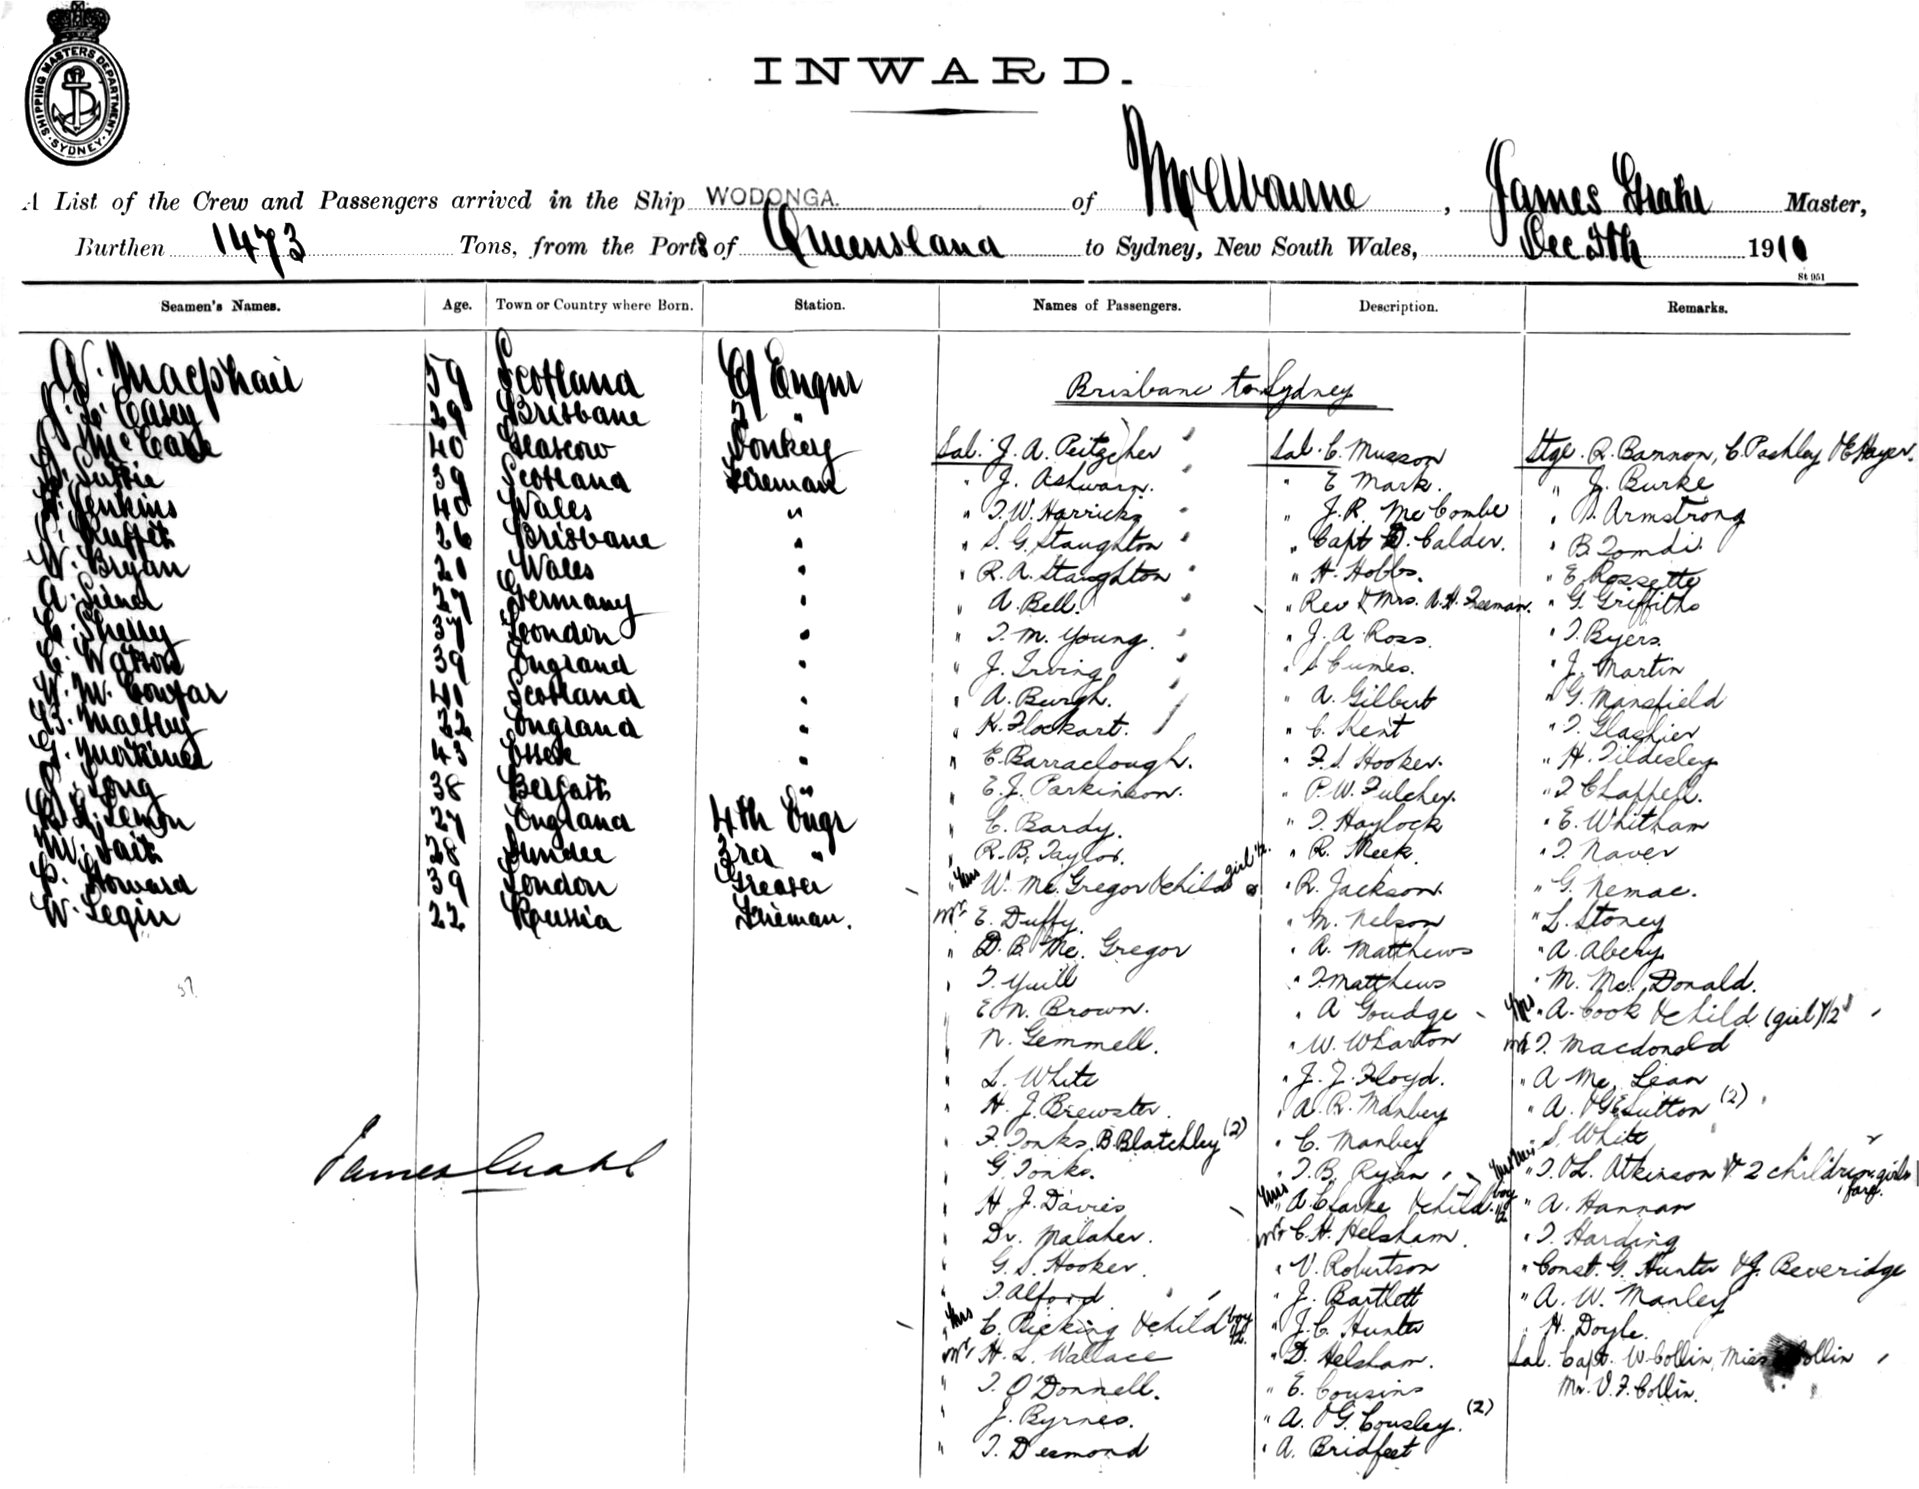 SHIPPING MASTERS DEPARTMENT · SYDNEY ·
INWARD.
A List of the Crew and Passengers arrived in the Ship WODONGA. of Melbourne, James Master,
Burthen 1473 Tons, from the Ports of Queensland to Sydney, New South Wales, Dec 1910
St 951
Seamen's Names. Age. Town or Country where Born. Station. Names of Passengers. Description. Remarks.
Macphail 59 Scotland Cf Engnr
Casey 29 Brisbane 2 "
McCabe 40 Glascow Donkey
Suttie 39 Scotland Fireman
Jenkins 40 Wales "
26 Brisbane "
W. Bryan 20 Wales "
A. 27 Germany "
C. Shelly 37 London "
C. Watson 39 England "
Scotland "
Maltby 22 England "
G. 43 Essex "
Long 38 Belfast "
Lemon 27 England 4th Engr
Tait 28 Dundee 3rd "
Howard 39 London Greaser
W. Segin 22 Russia Fireman.
James
Brisbane to Sydney
Sal. J. A. Peitzcher
" J. Ashwarn.
" T. W. Harricks
" S. G. Staughton
" R. A. Staughton
" A. Bell.
" T. M. Young.
" J. Irving
" A. Burgh.
" K. Flockart.
" E. Barraclough.
" E. J. Parkinson.
" C. Bardy.
" R. B. Taylor.
" Mrs W. Mc. Gregor & child girl 1/2.
Mr. E. Duffy.
" D. B. Mc. Gregor
" T. Yuill
" E. N. Brown.
" N. Gemmell.
" L. White
" H. J. Brewster.
" F. Tonks, B Blatchley (2)
" G. Tonks.
" H. J. Davies
" Dr. Malaher.
" G. S. Hooker.
" T. Alford
" Mrs C. Picking & child boy 1/2.
Mr. H. L. Wallace
" T. O'Donnell.
" J. Byrnes.
" T. Desmond
Sal. C. Musson
" E Mark.
" J. R. McCombe
" Capt D. Calder.
" H. Hobbs.
" Rev & Mrs. A. H. Freeman.
" J. A. Ross.
" S Cumes.
" A. Gilbert
" C. Kent
" F. S. Hooker.
" P. W. Fulcher.
" T. Haylock
" R. Meek.
" R. Jackson.
" M. Nelson
" A. Matthews
" T. Matthews
" A Goudge
" W. Wharton
" J. J. Floyd.
" A. R. Manbey
" C. Manbey
" T. B. Ryan
Mrs " A Clarke & child. boy 1/2
Mr C. H. Helsham.
" V. Robertson
" J. Bartlett
" J. C. Hunter
" D. Helsham.
" E. Cousins
" A. & G. Cousley. (2)
" A. Bridfeet
Stge. R. Bannon, C. Pashley & E Hayer.
" J. Burke
" Armstrong
" B. Tomdi
" E. Rossette
" G. Griffiths
" T. Byers.
" J. Martin
" G. Mansfield
" T. Glashier
" H. Tildesley
" T Chappell.
" E. Whitham
" T. Naver
" G. Nemac.
" L. Stoney
" A. Abery
" M. Mc. Donald.
Mrs " A. Cook & child (girl) 1/2
Mr T. Macdonald
" A Mc. Lean
" A. & G E Sutton (2)
" S. White
" T. & L. Atkinson & 2 children girls
" A. Hannan
" T. Harding
" Const. G. Hunter & J. Beveridge
" A. W. Manley
H. Doyle.
Sal. Capt. W. Collin, Miss Collin
Mr. V. F. Collin.